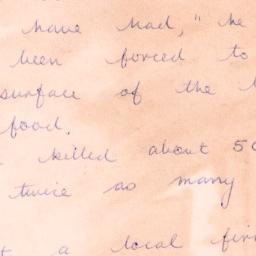 have had," he
been forced to
surface of the
food.
killed about 50
twice as many
a local fir